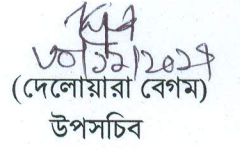 ৩০/১২/২০২৪
(দেলোয়ারা বেগম)
উপসচিব